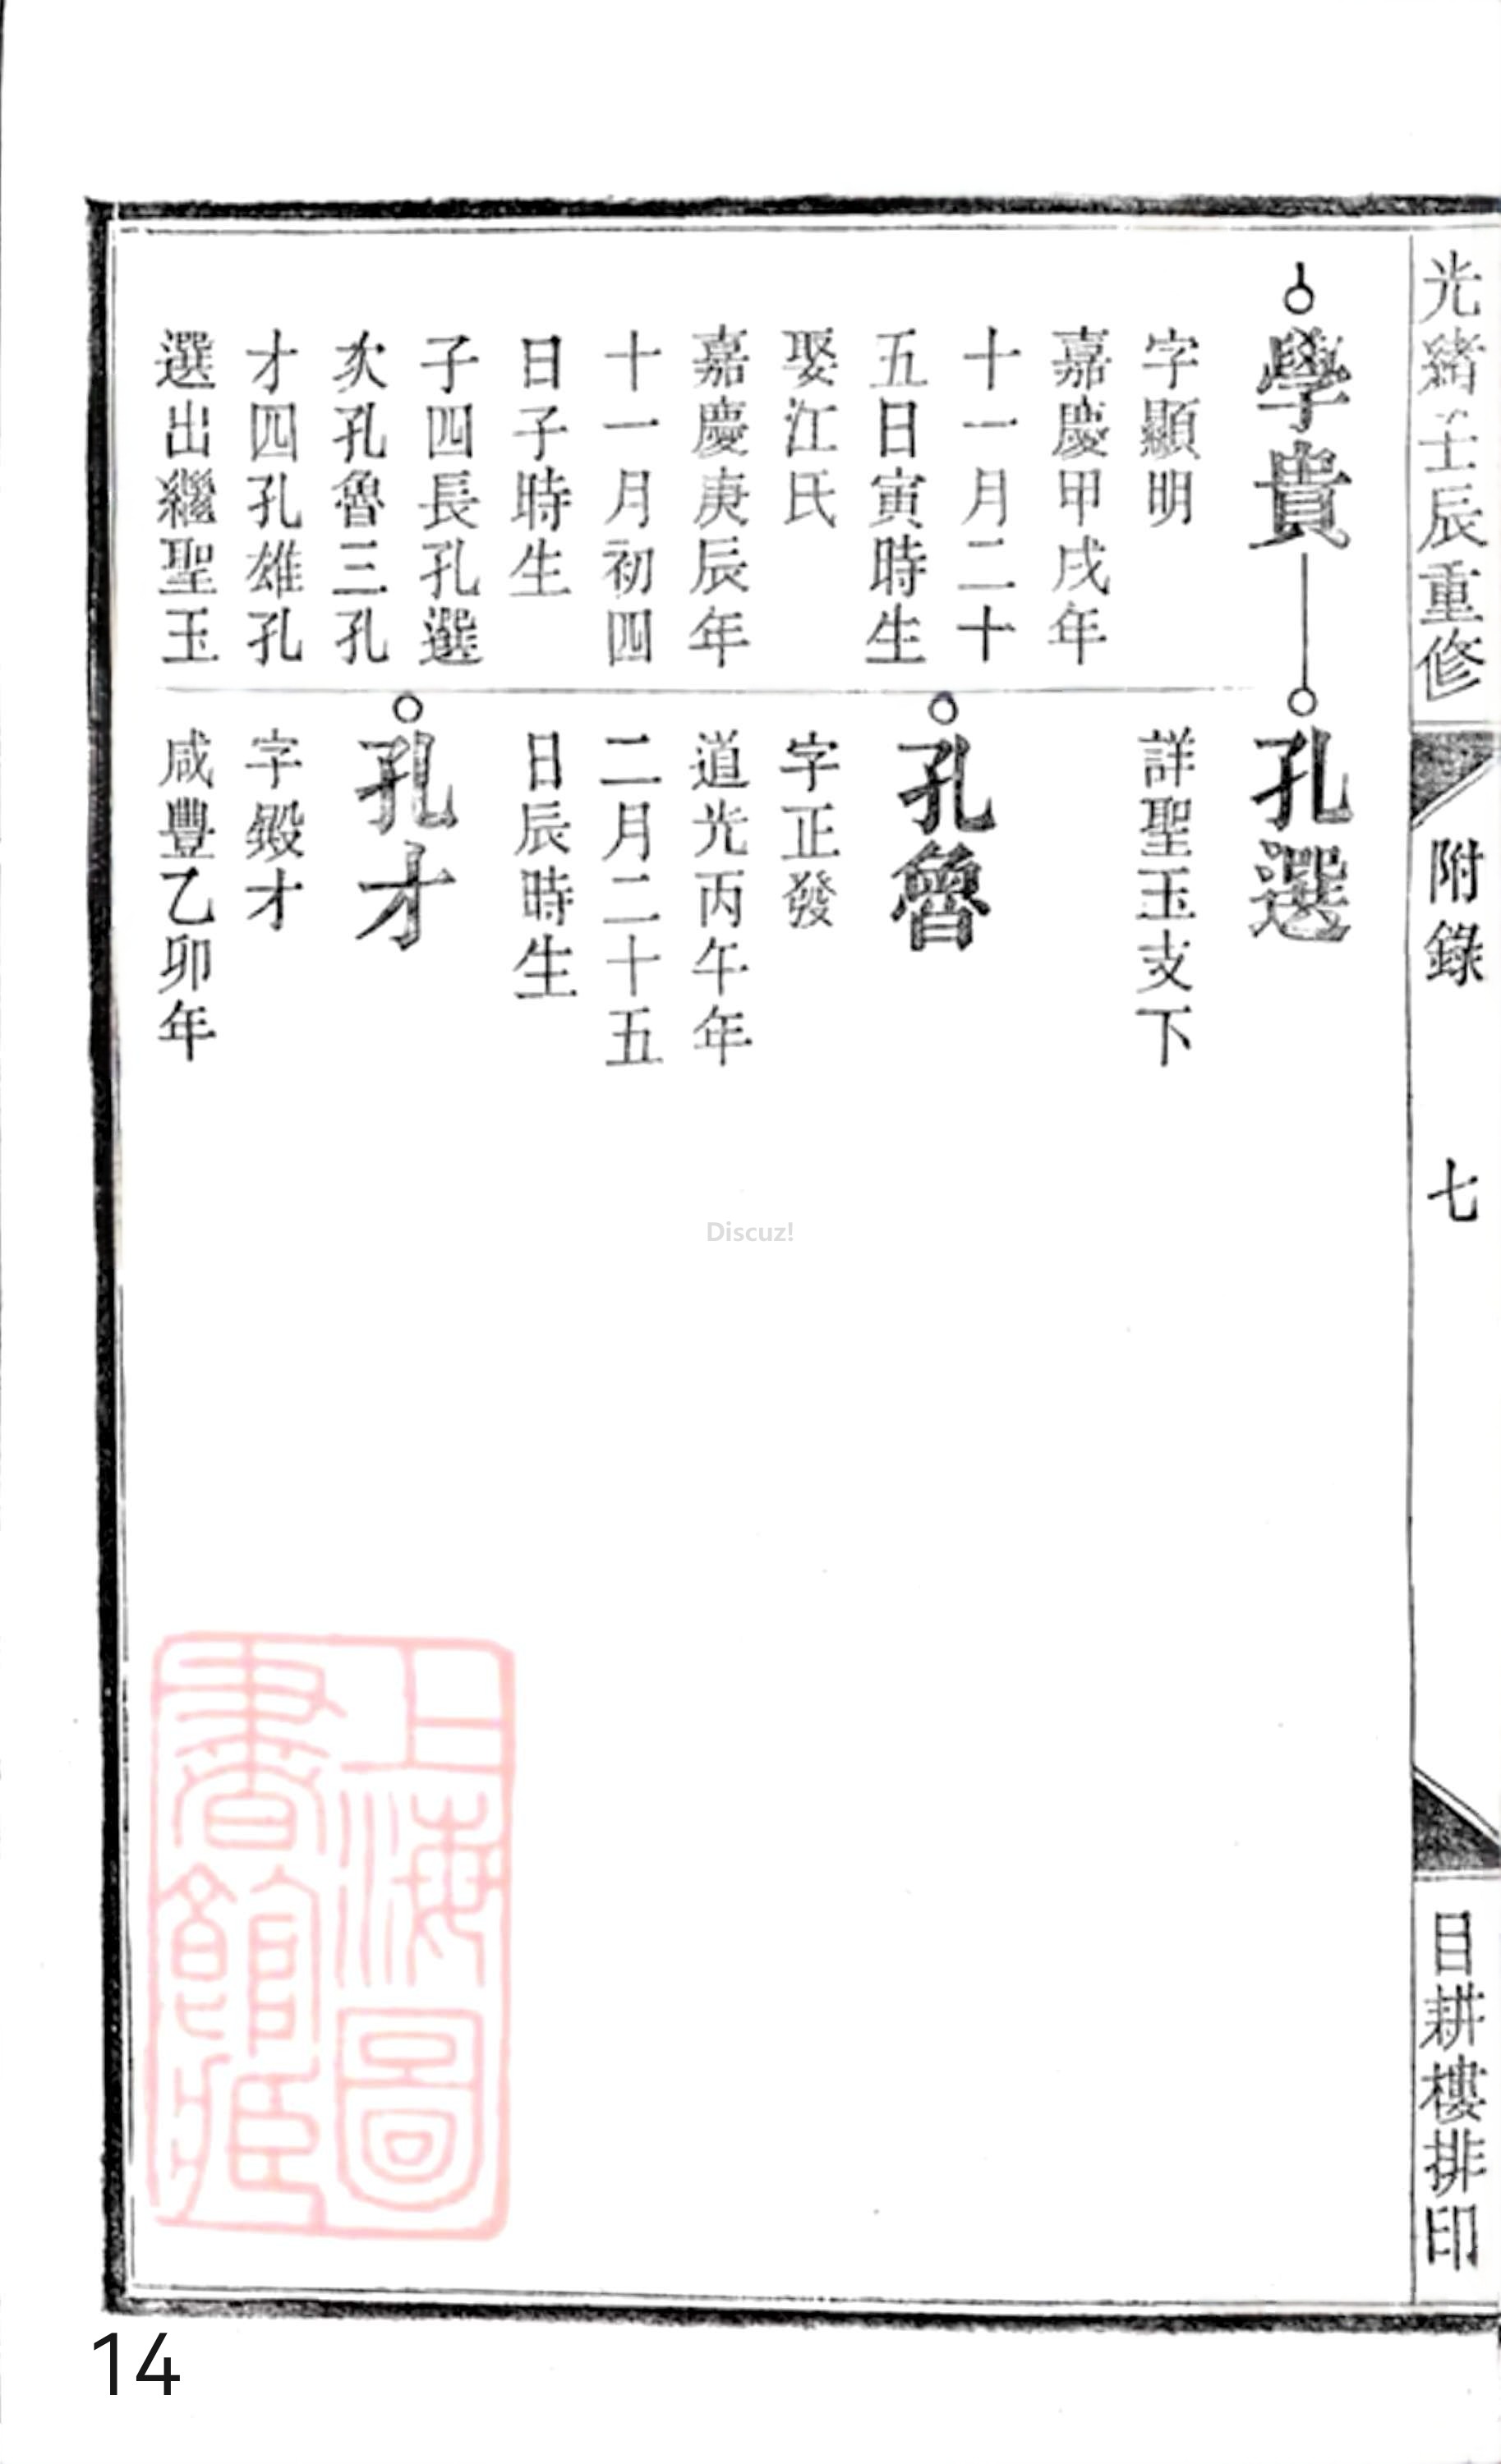 光緒壬辰重修
附錄
七
目耕樓排印
學貴
字顯明
嘉慶甲戌年
十一月二十
五日寅時生
娶江氏
嘉慶庚辰年
十一月初四
日子時生
子四長孔選
次孔魯三孔
才四孔雄孔
選出繼聖玉
孔選
詳聖玉支下
孔魯
字正發
道光丙午年
二月二十五
日辰時生
孔才
字毅才
咸豐乙卯年
上海圖
書館藏
Discuz!
14